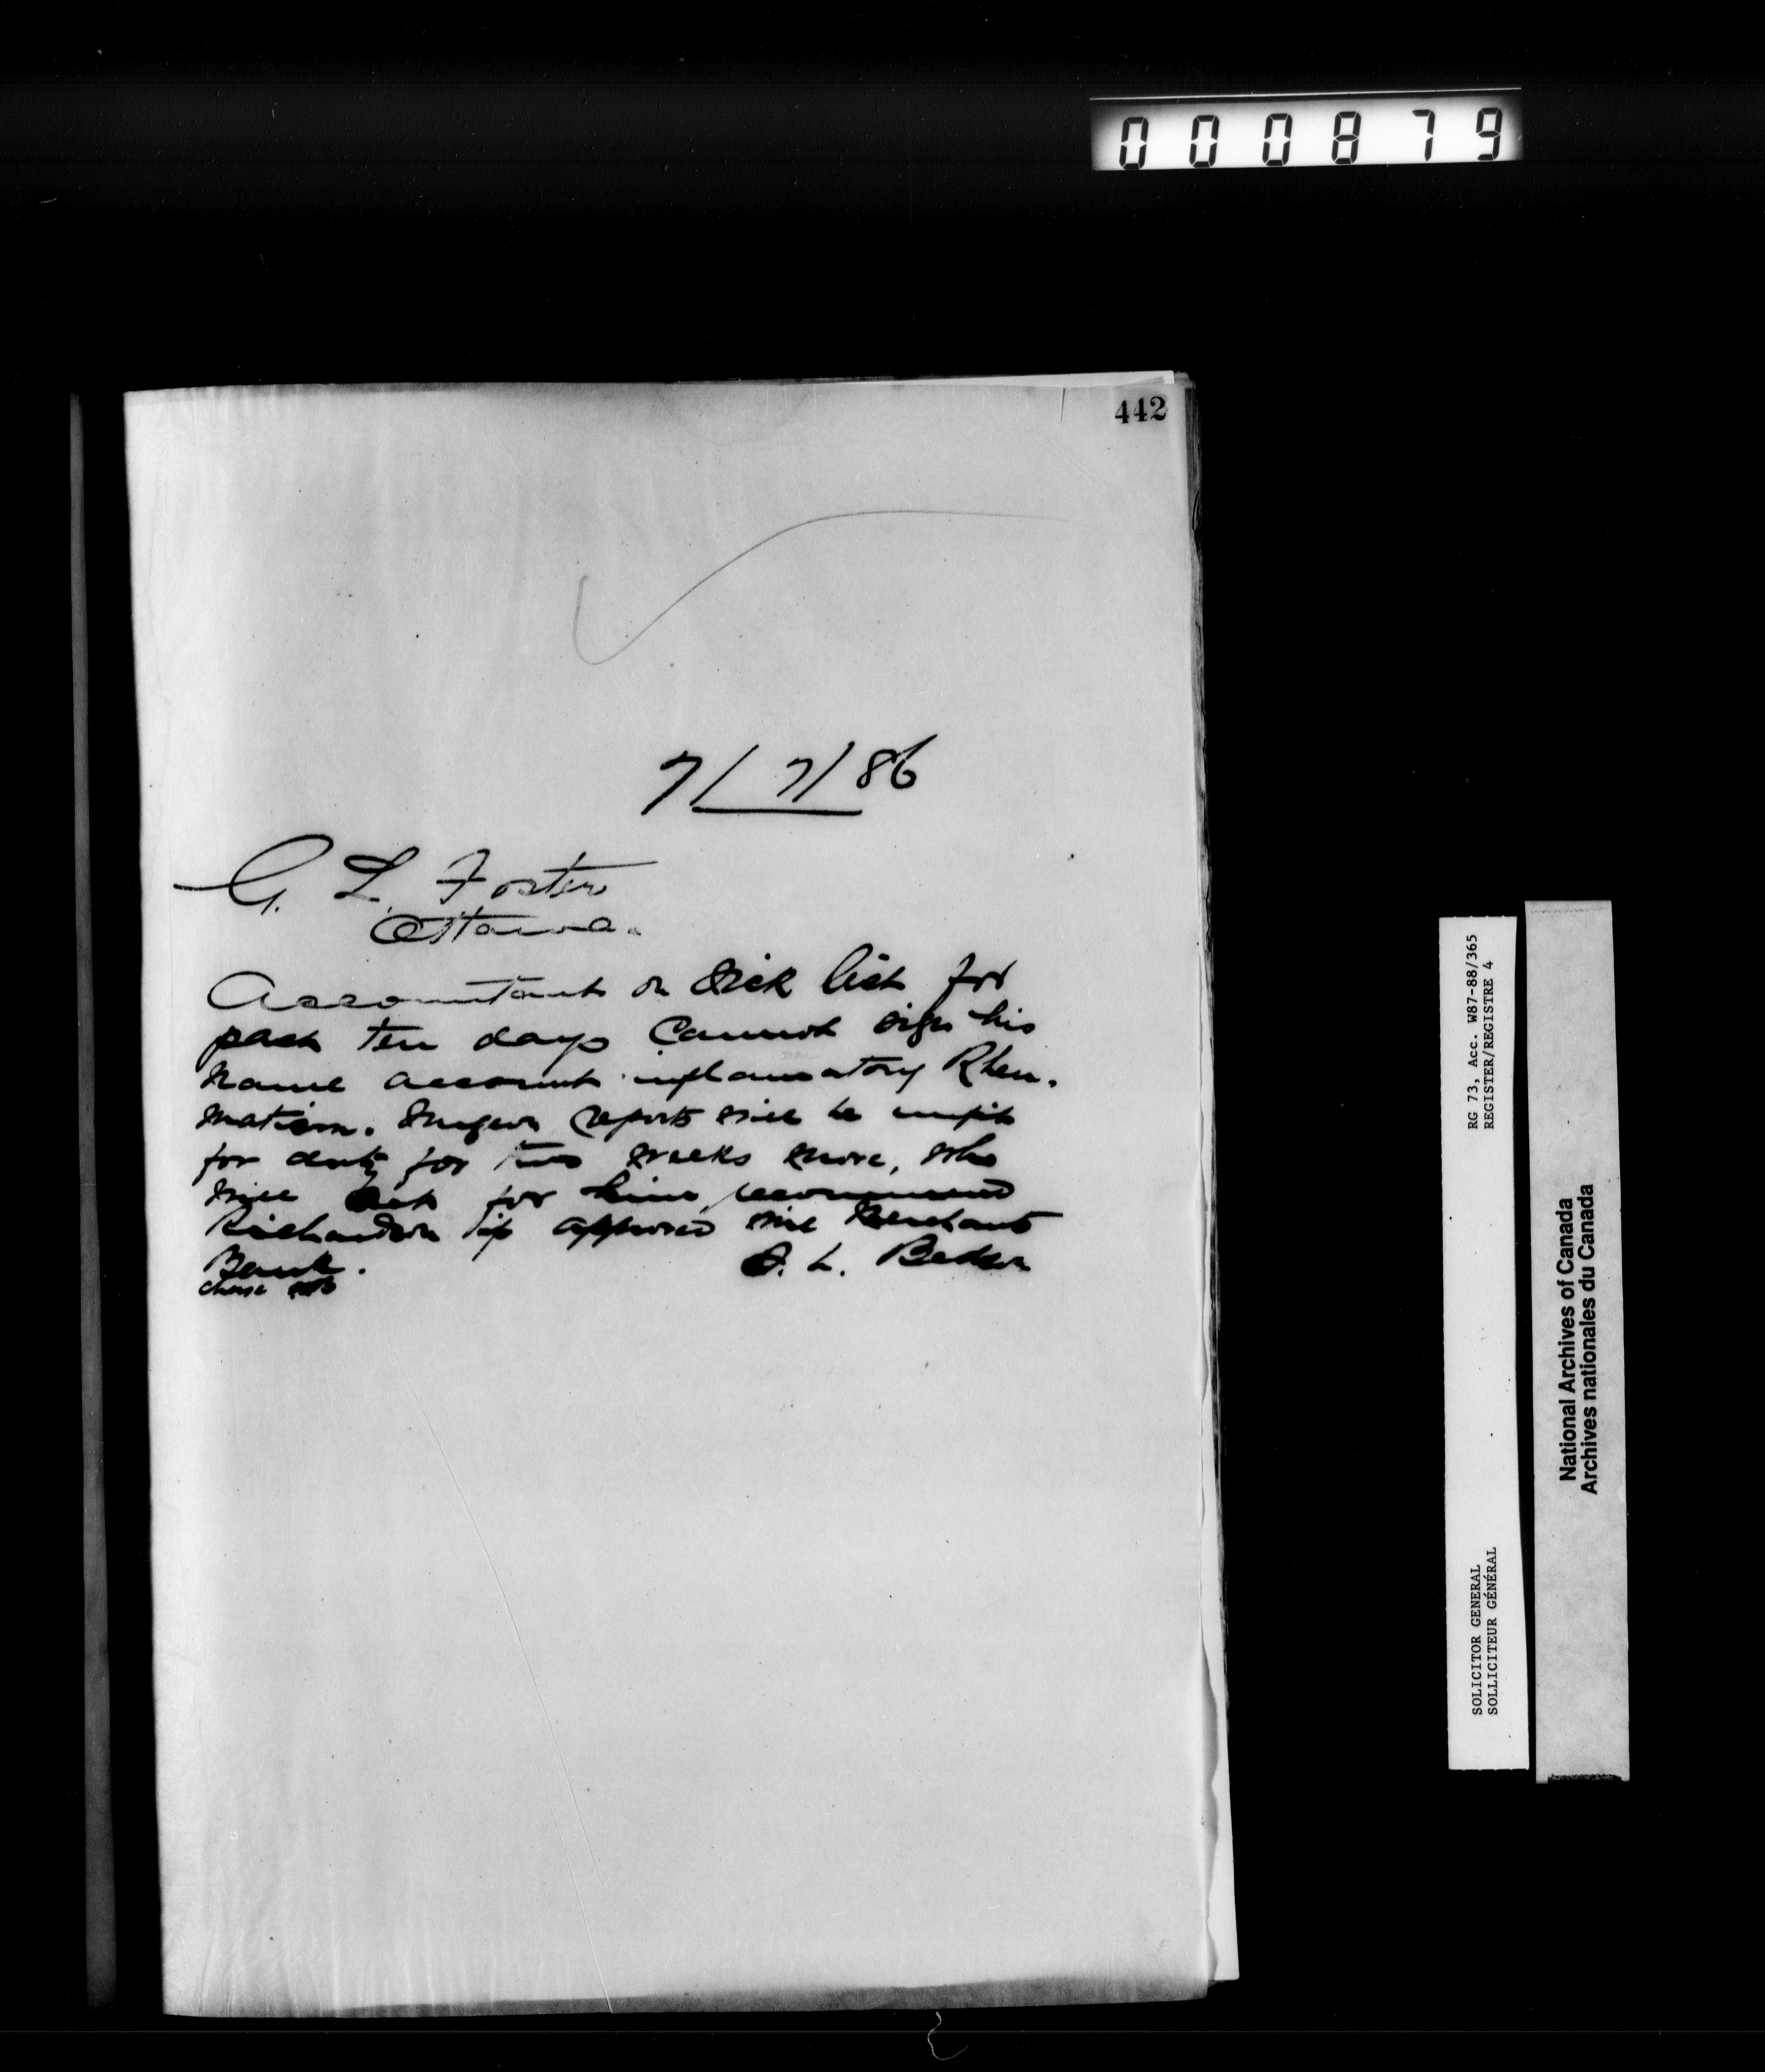 000879
442
7/7/86
G. L. Foster
Ottawa.
Accountant on Sick list for
past ten days Cannot sign his
name account inflammatory Rheu.
matism. Surgeon reports will be unfit
for duty for two weeks more, who
will act for him, recommend
Richardson if approved wire Merchants
Bank.
S. L. Bedson
charge
RG 73, Acc. W87-88/365
REGISTER/REGISTRE 4
SOLICITOR GENERAL
SOLLICITEUR GÉNÉRAL
National Archives of Canada
Archives nationales du Canada